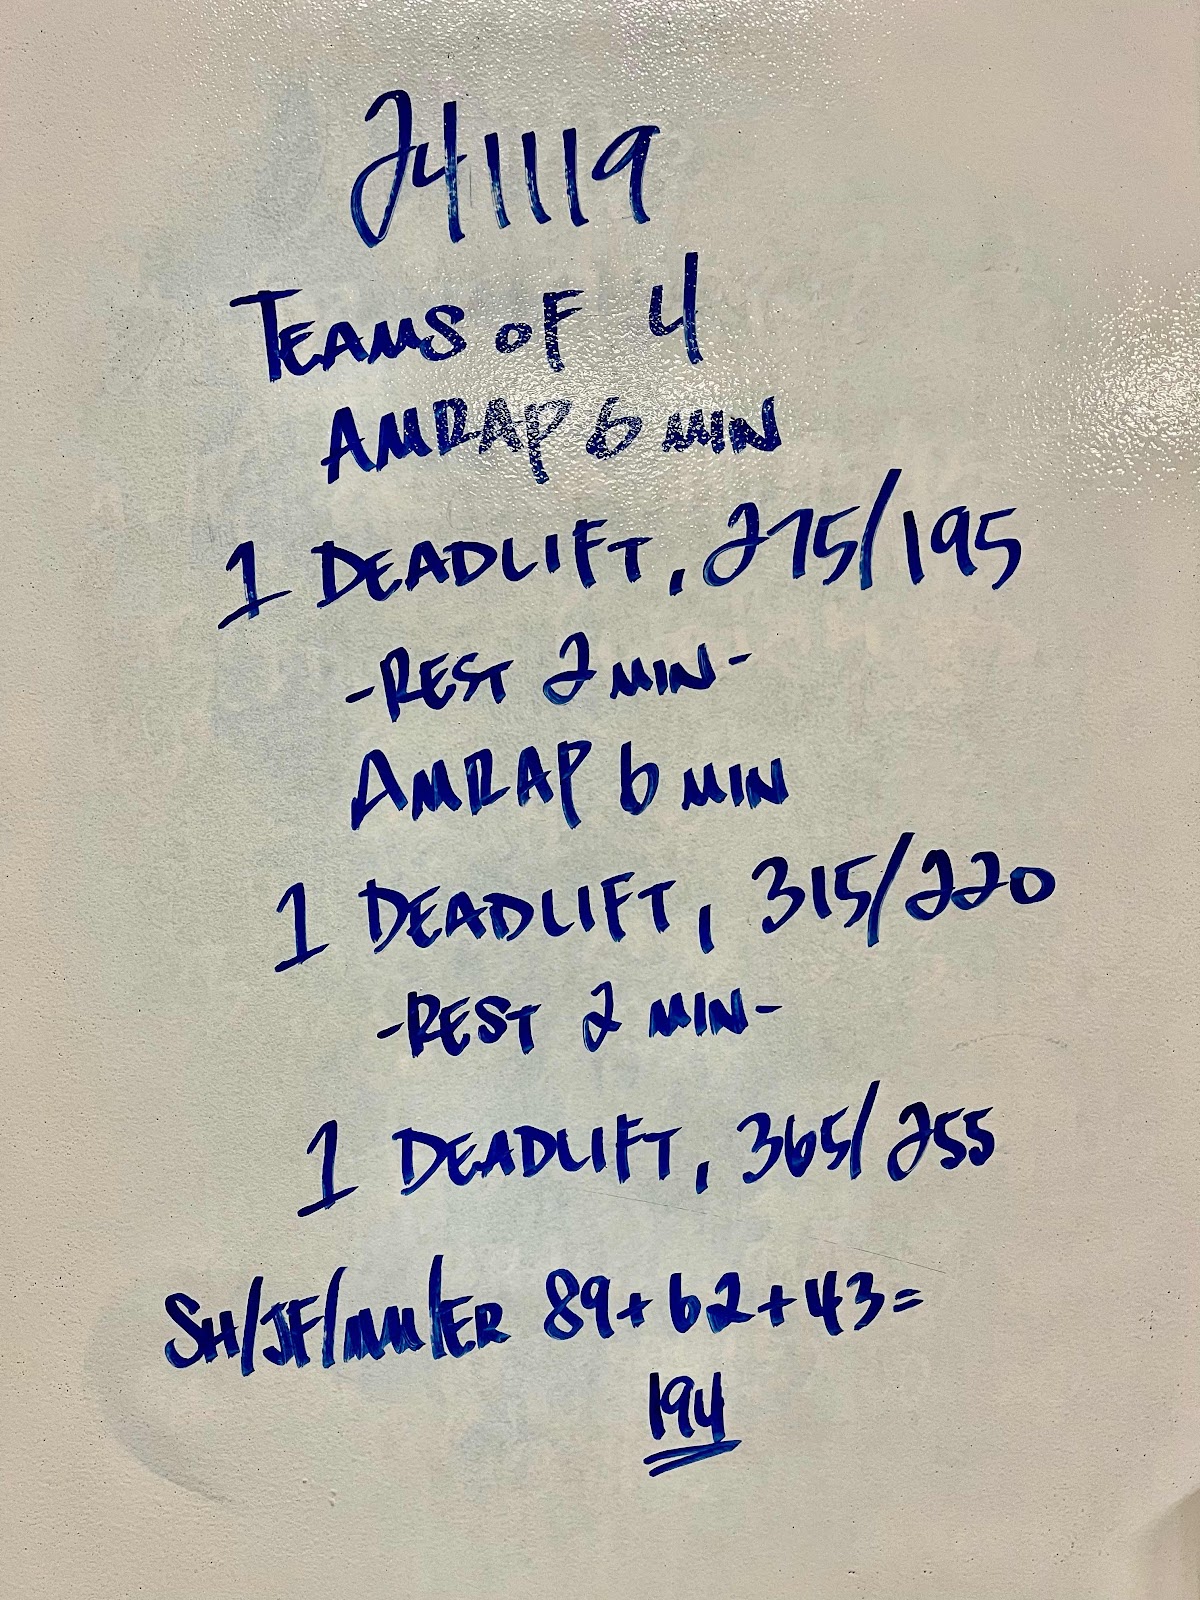 241119
TEAMS OF 4
AMRAP 6 MIN
1 DEADLIFT, 275/195
-REST 2 MIN-
AMRAP 6 MIN
1 DEADLIFT, 315/220
-REST 2 MIN-
1 DEADLIFT, 365/255
SH/JF/MM/ER 89+62+43=
194